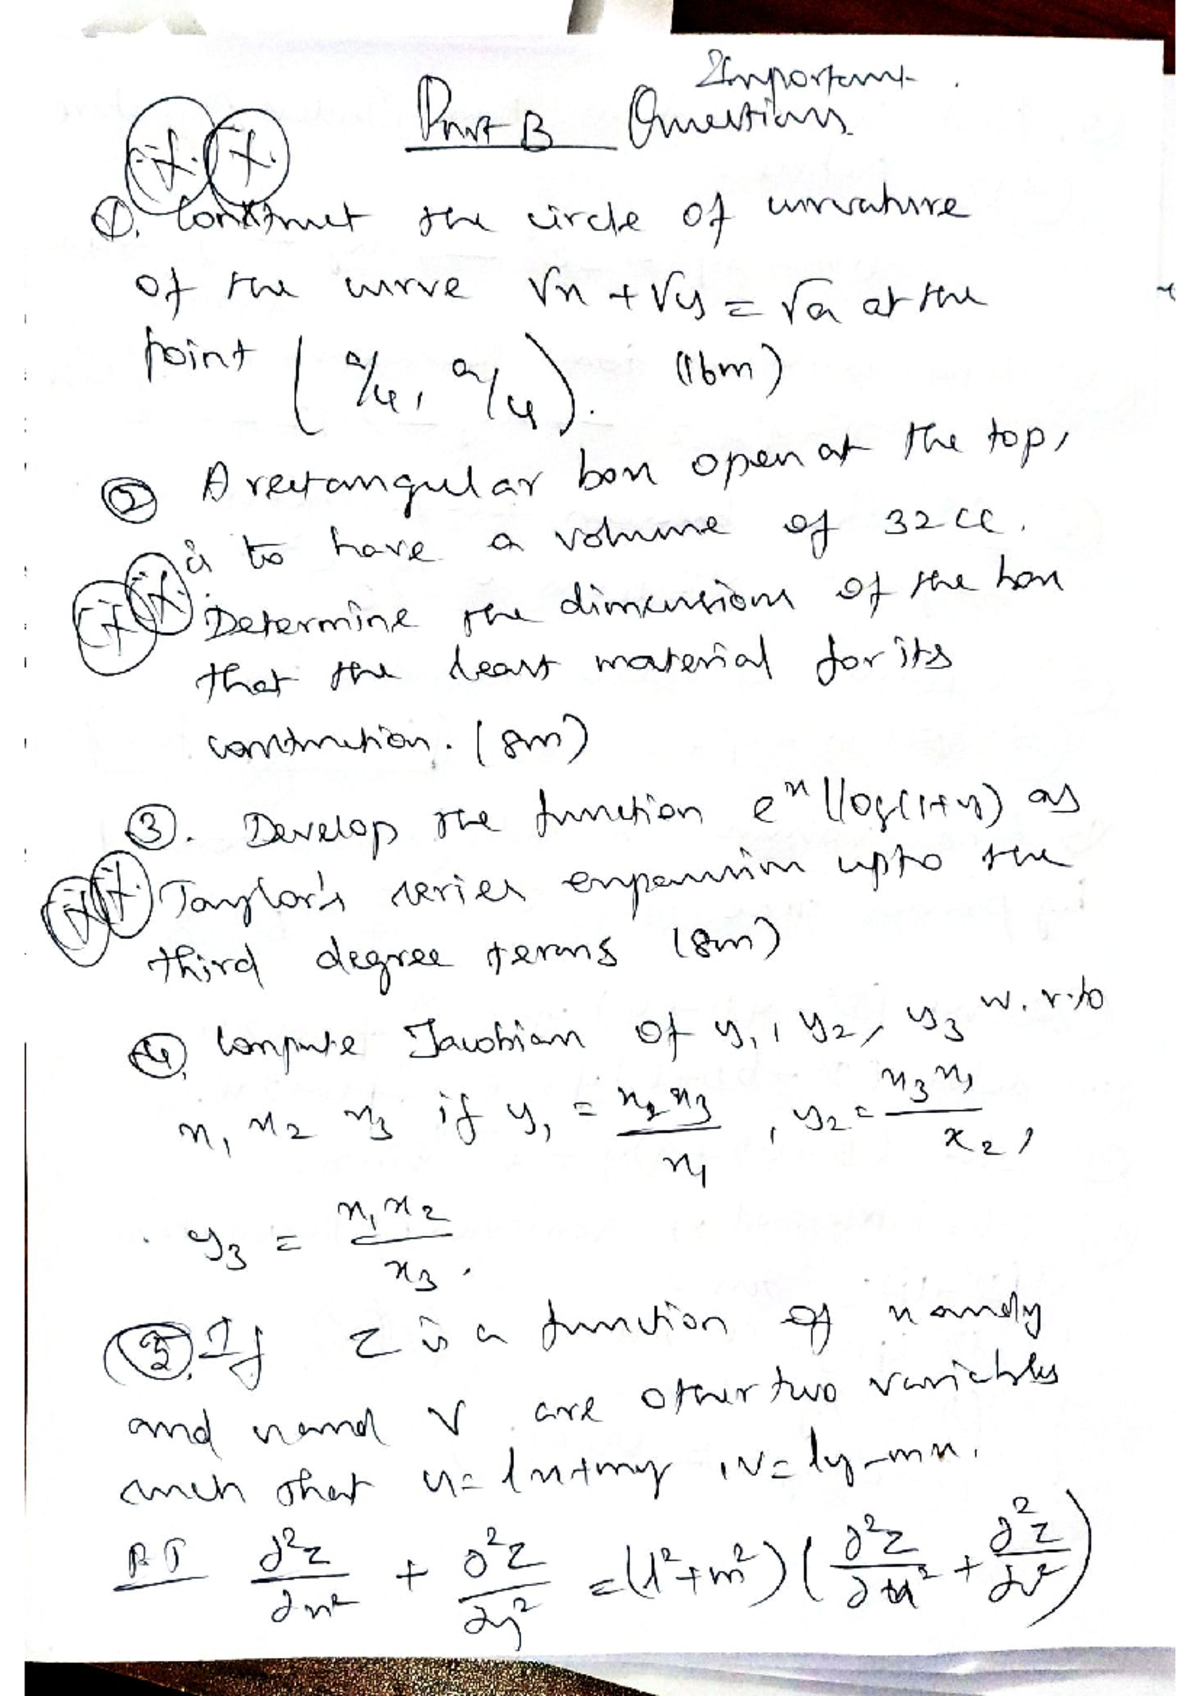 Important
Part B Questions
① Construct the circle of curvature
of the curve √x + √y = √a at the
point (a/4, a/4). (16m)
② A rectangular box open at the top,
is to have a volume of 32 cc.
Determine the dimensions of the box
that the least material for its
construction. (8m)
③. Develop the function e^x log(1+y) as
Taylor's series expansion upto the
third degree terms (8m)
④ Compute Jacobian of y₁, y₂, y₃ w.r.to
x₁ x₂ x₃ if y₁ = x₂x₃/x₁, y₂ = x₃x₁/x₂,
y₃ = x₁x₂/x₃.
⑤. If z is a function of x and y
and u and v are other two variables
such that u = lx+my, v = ly-mx.
PT ∂²z/∂x² + ∂²z/∂y² = (l²+m²)(∂²z/∂u² + ∂²z/∂v²)